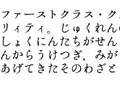 ファーストクラス・ク
リィティ。じゅくれんの
しょくにんたちがせん
んからうけつぎ、みが
あげてきたそのわざと